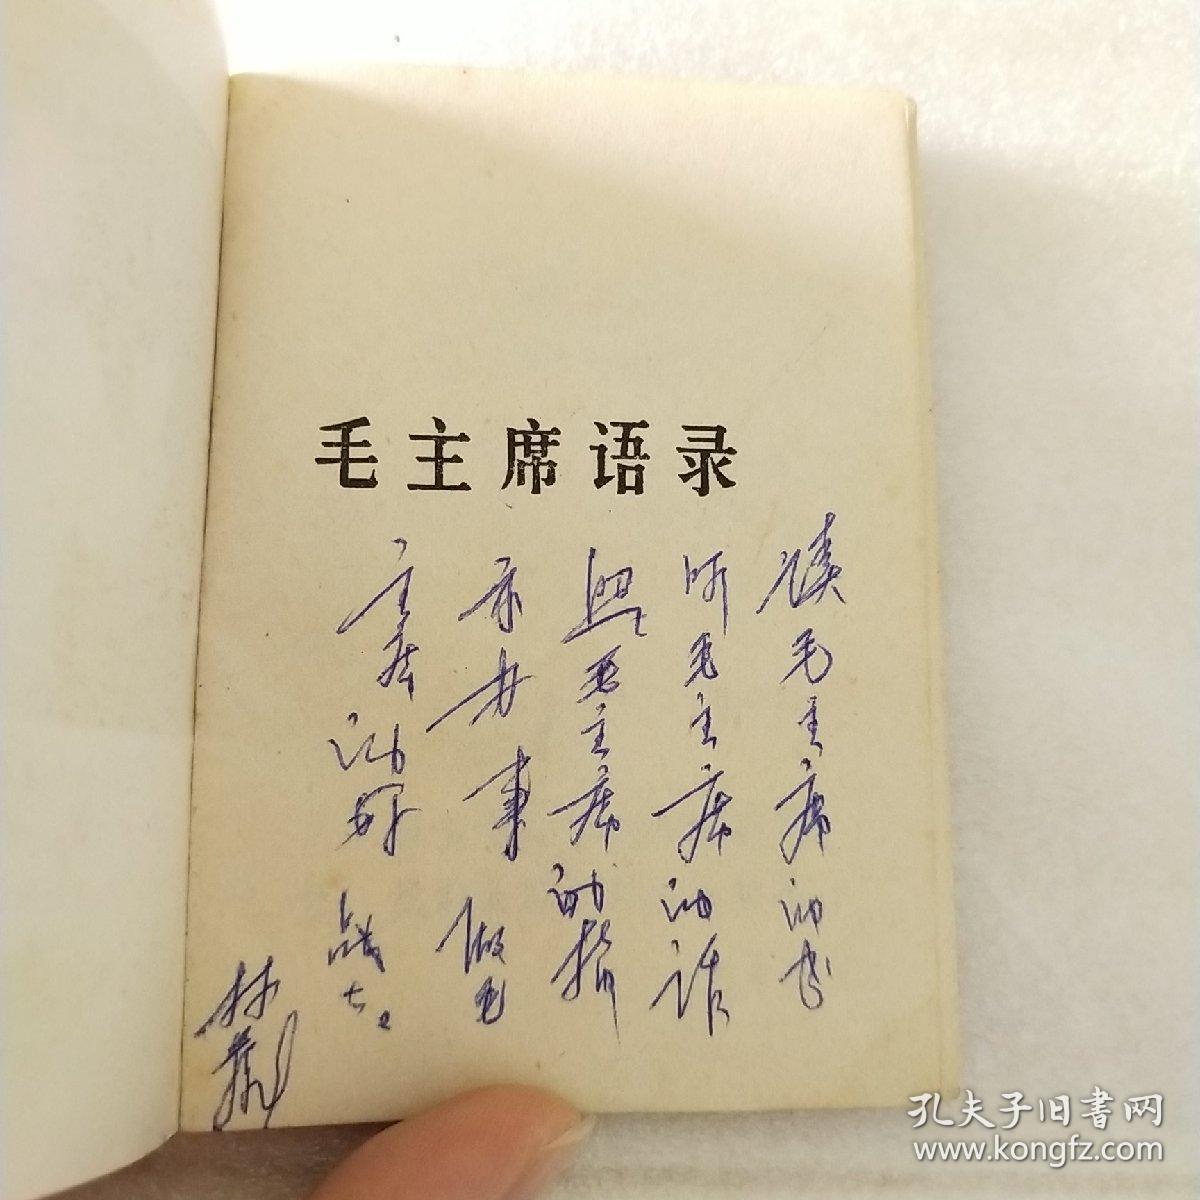 毛主席语录
读毛主席的书
听毛主席的话
照毛主席的指
示办事做毛
主席的好战士。
林彪
孔夫子旧書网
www.kongfz.com